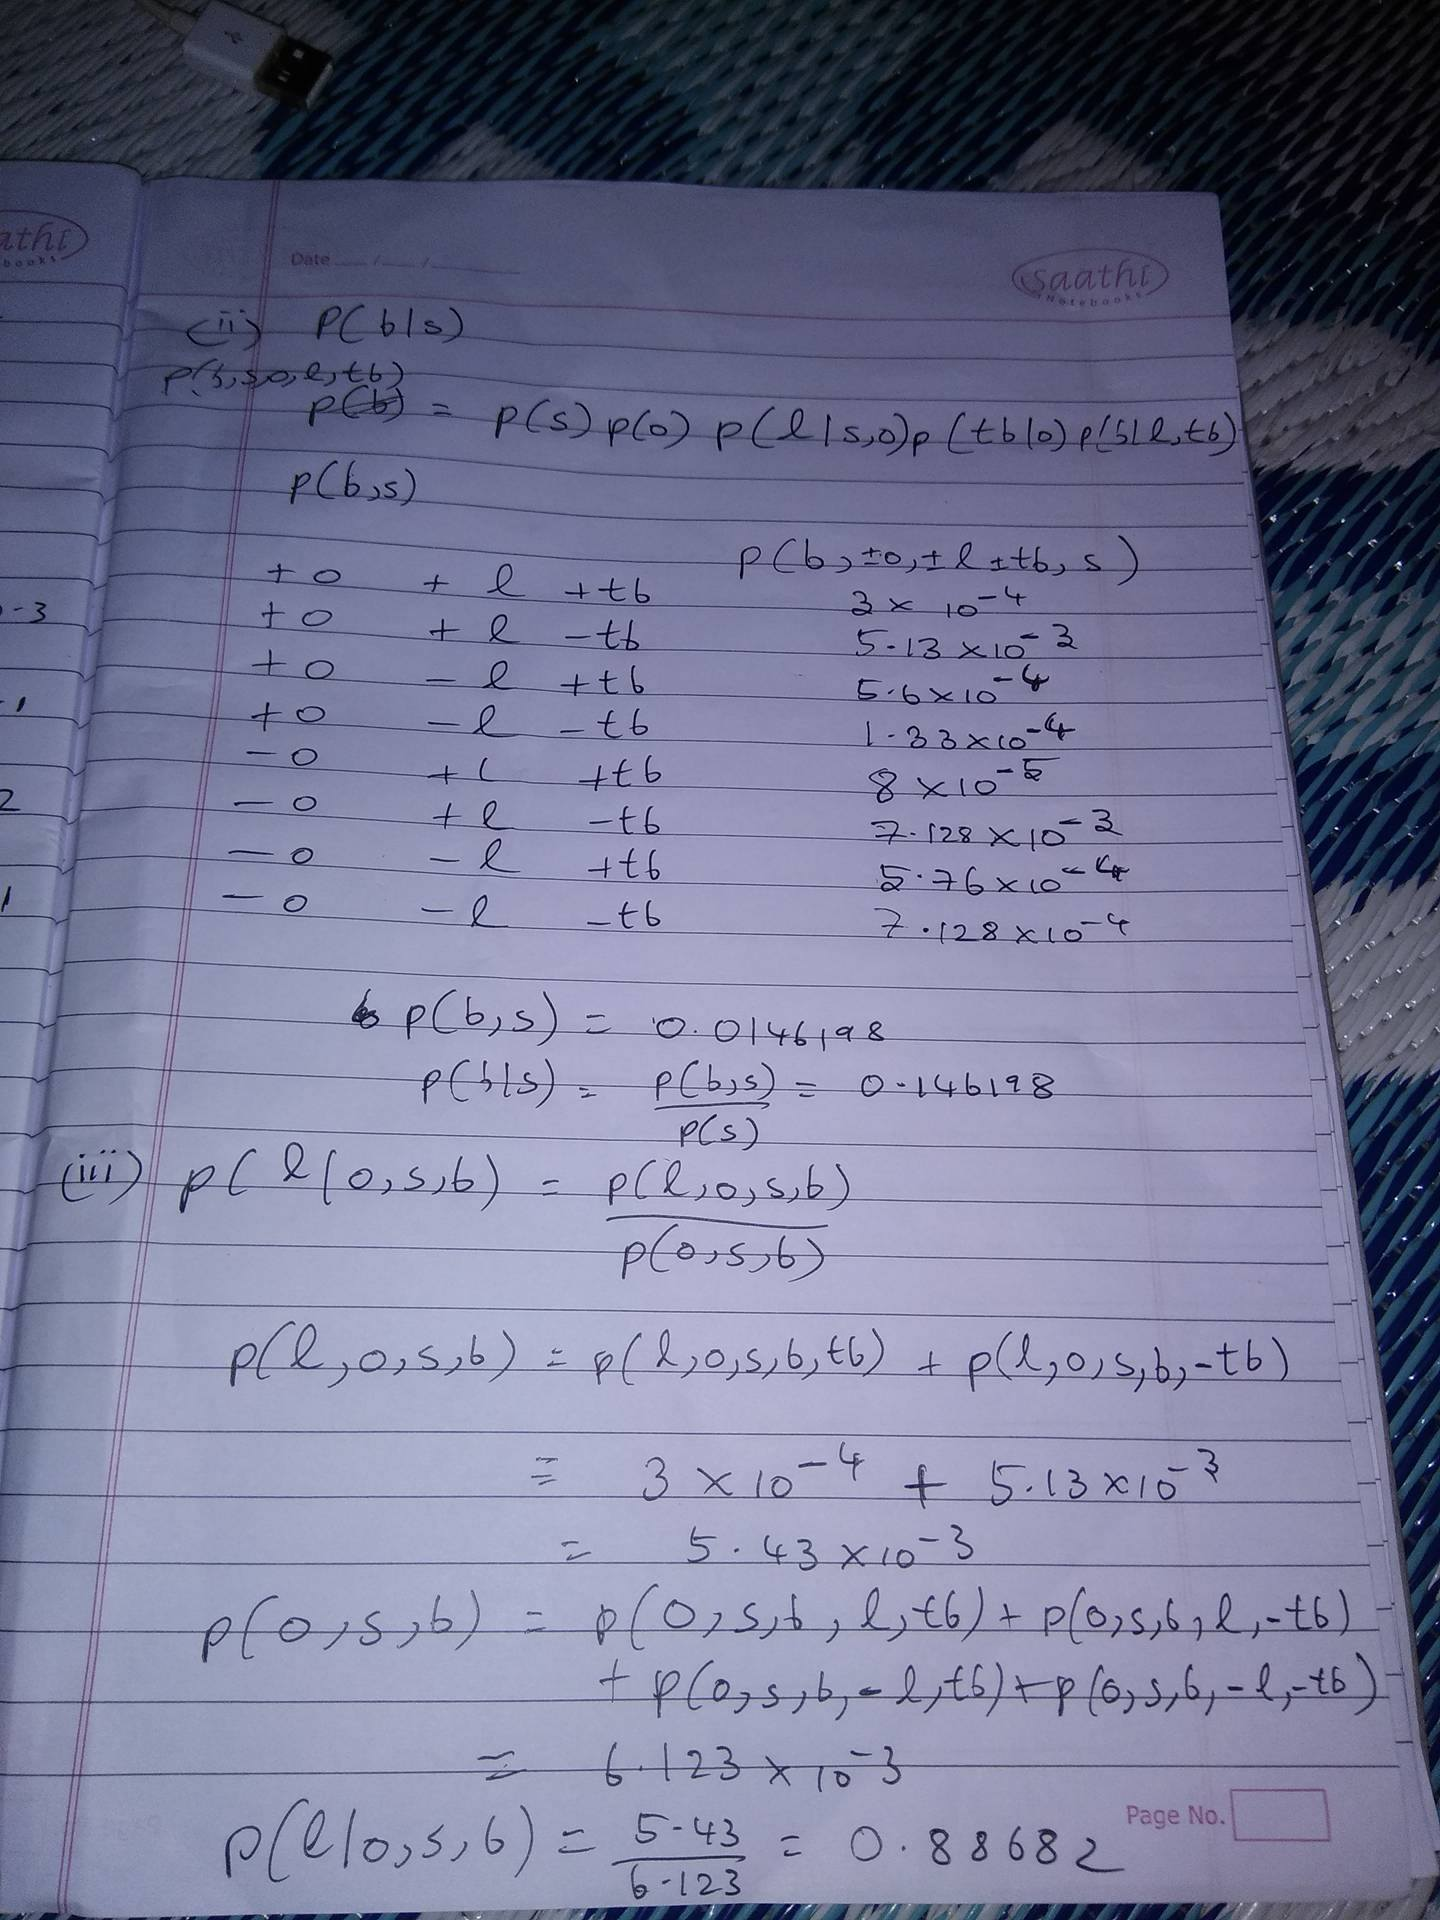 athi
books
Date / /
saathi
Notebooks
(ii) P(b|s)
p(b,s,o,l,tb)
p(b) = p(s) p(o) p(l|s,o) p(tb|o) p(b|l,tb)
p(b,s)
p(b,±o,±l,±tb,s)
+o +l +tb 3×10-4
+o +l -tb 5.13×10-3
+o -l +tb 5.6×10-4
+o -l -tb 1.33×10-4
-o +l +tb 8×10-5
-o +l -tb 7.128×10-3
-o -l +tb 5.76×10-4
-o -l -tb 7.128×10-4
-3
-1
2
1
p(b,s) = 0.0146198
p(b|s) = p(b,s) = 0.146198
p(s)
(iii) p(l|o,s,b) = p(l,o,s,b)
p(o,s,b)
p(l,o,s,b) = p(l,o,s,b,tb) + p(l,o,s,b,-tb)
= 3×10-4 + 5.13×10-3
= 5.43×10-3
p(o,s,b) = p(o,s,b,l,tb) + p(o,s,b,l,-tb)
+ p(o,s,b,-l,tb) + p(o,s,b,-l,-tb)
= 6.123×10-3
p(l|o,s,b) = 5.43 = 0.88682
6.123
Page No.